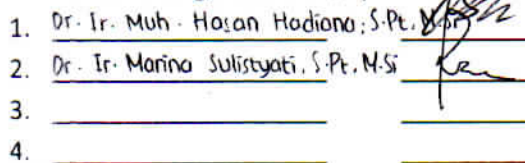 1. Dr. Ir. Muh. Hasan Hadiana, S.Pt. M.Si
2. Dr. Ir. Marina Sulistyati, S.Pt, M.Si
3.
4.